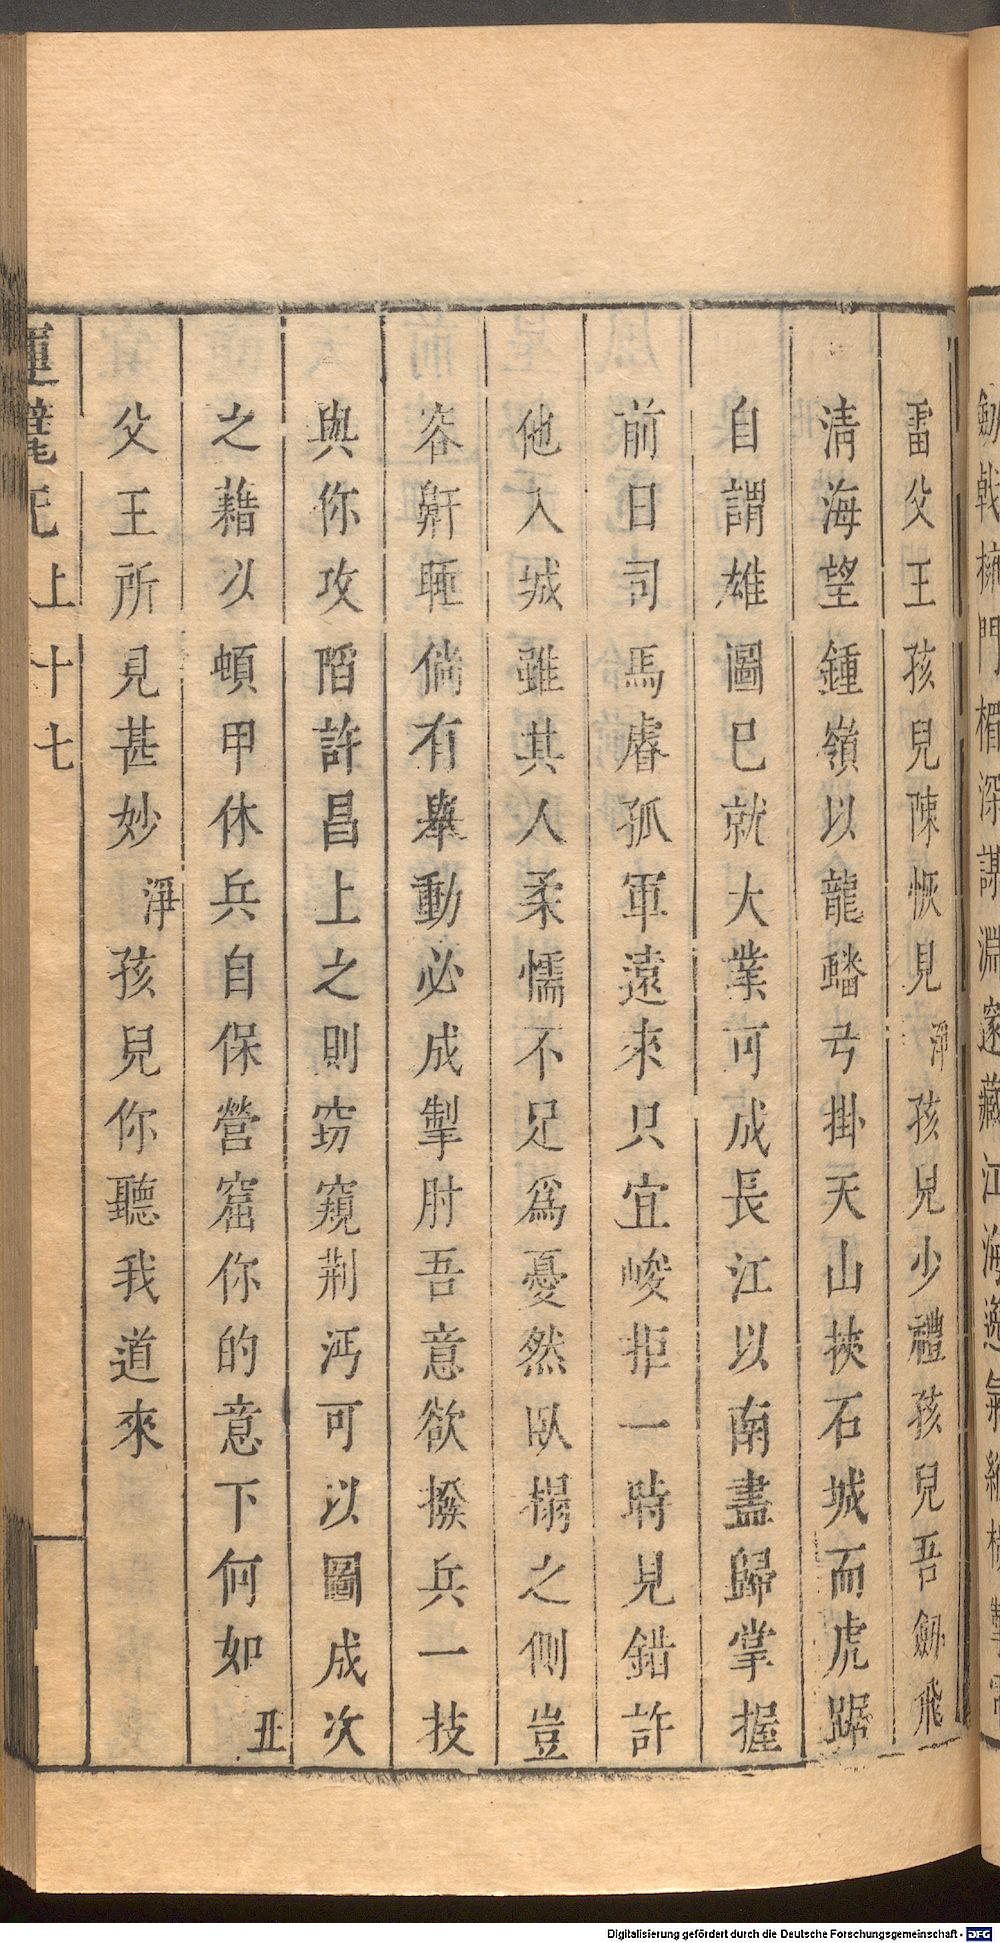 劔戟擁門楣深謀淵邃藏江海
雷父王孩兒陳恢見淨孩兒少禮孩兒吾劔飛
清海望鍾嶺以龍蟠弓掛天山挾石城而虎踞
自謂雄圖已就大業可成長江以南盡歸掌握
前日司馬睿孤軍遠來只宜峻拒一時見錯許
他入城雖其人柔懦不足爲憂然臥榻之側豈
容鼾睡倘有舉動必成掣肘吾意欲撥兵一技
與你攻陷許昌上之則窃窺荆沔可以圖成次
之藉以頓甲休兵自保營窟你的意下何如丑
父王所見甚妙淨孩兒你聽我道來
運甓記上十七
Digitalisierung gefördert durch die Deutsche Forschungsgemeinschaft - DFG